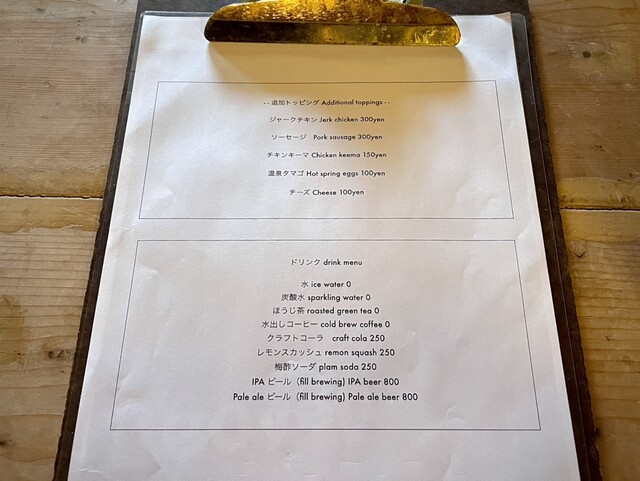 -- 追加トッピング Additional toppings --
ジャークチキン Jerk chicken 300yen
ソーセージ　Pork sausage 300yen
チキンキーマ Chicken keema 150yen
温泉タマゴ Hot spring eggs 100yen
チーズ Cheese 100yen
ドリンク drink menu
水 ice water 0
炭酸水 sparkling water 0
ほうじ茶 roasted green tea 0
水出しコーヒー cold brew coffee 0
クラフトコーラ　craft cola 250
レモンスカッシュ remon squash 250
梅酢ソーダ plam soda 250
IPA ビール（fill brewing) IPA beer 800
Pale ale ビール（fill brewing) Pale ale beer 800